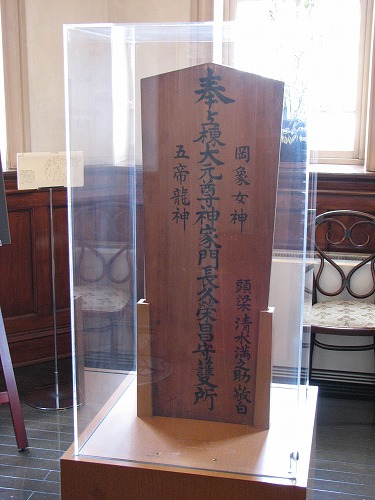 岡象女神
奉上棟大元尊神家門長久栄昌守護所
五帝龍神
頭梁清水満之助敬白